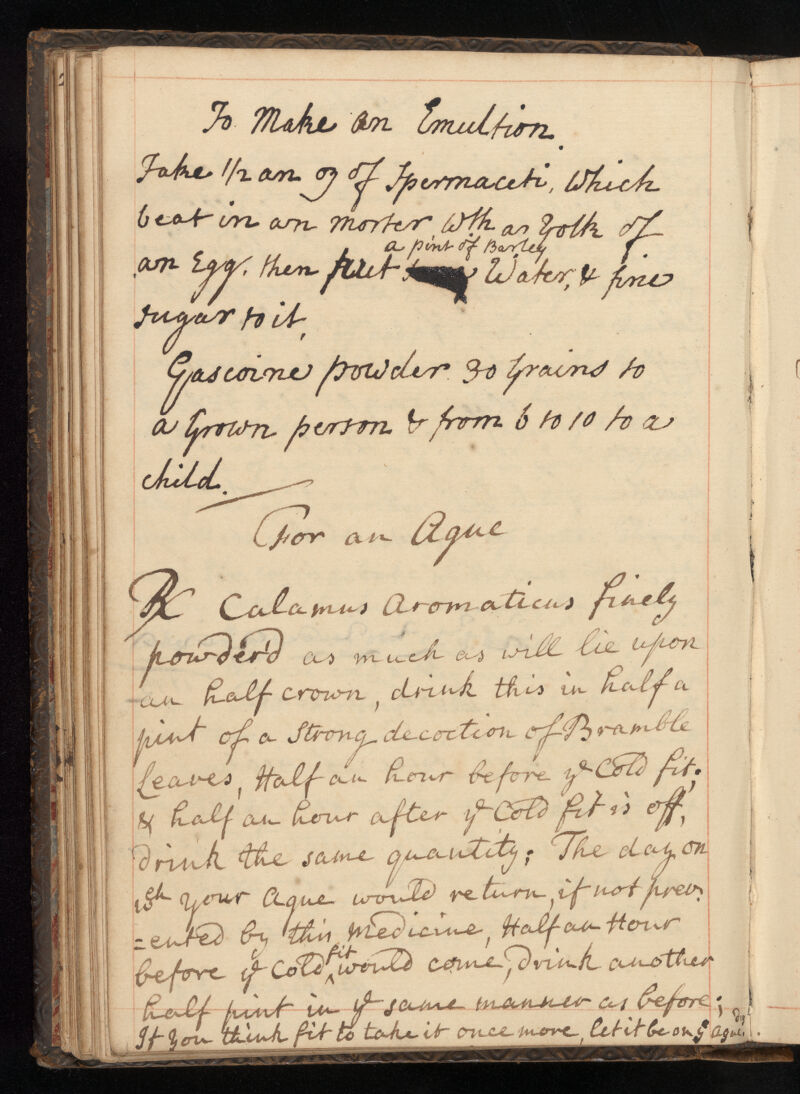 To Make an Emultion.
Take 1/2 an oz of Spermaceti, Which
beat in an morter Wth an Yolk of
a pint of Barley
an Egg. then put Water, & fine
sugar to it,
Gascoine powder 30 Grains to
a Grown person & from 6 to 10 to a
child.
For an Ague
℞ Calamus Aromaticus finely
powder'd as much as will lie upon
an half crown, drink this in half a
pint of a Strong decoction of Bramble
Leaves, Half an hour before ye Cold fit;
& half an hour after ye Cold fit is off,
drink the same quantity; The day on
wch your Ague would return, if not prev:
=ented by this Medicine, Half an Hour
before ye Cold fit would come, drink another
half pint in ye same manner as before;
If you think fit to take it once more, let it be on ye Ague day.